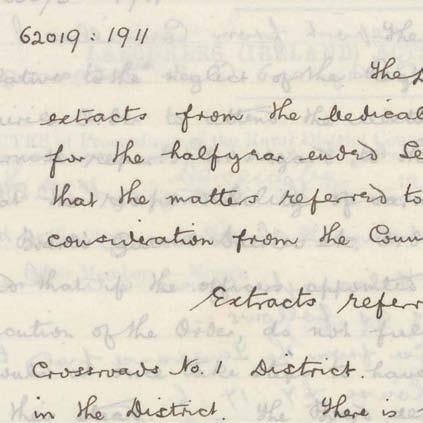 62019 : 1911
The
extracts from the Medical
for the halfyear ended Se
that the matters referred to
consideration from the Coun
Extracts referr
Crossroads No. 1 District.
in the District. There is